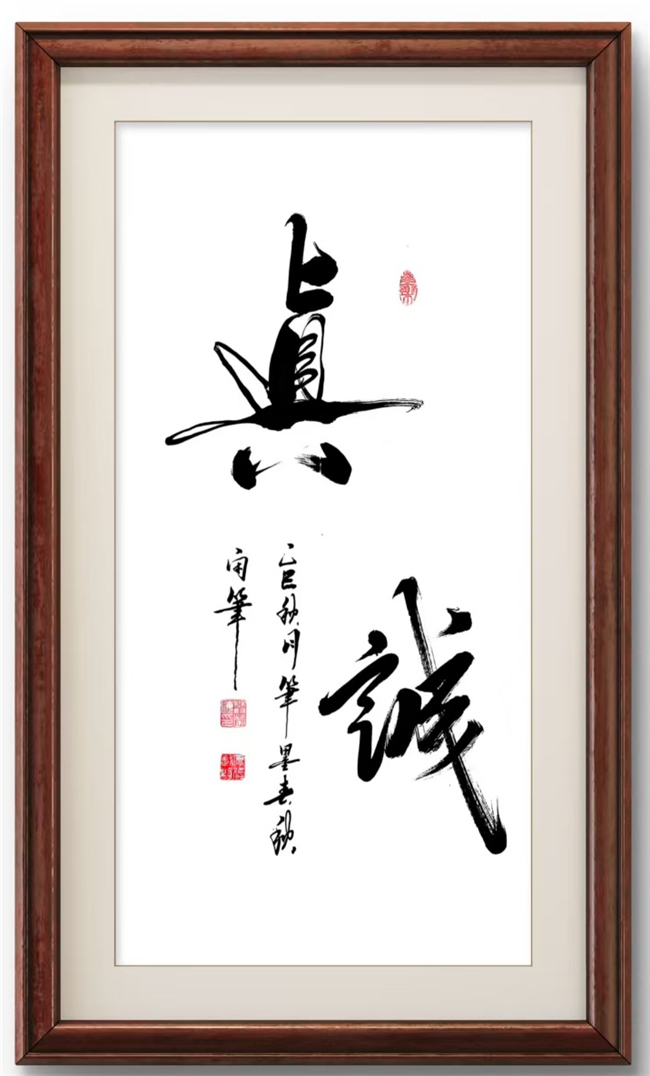 真
誠
乙巳秋月筆墨春秋
闲筆